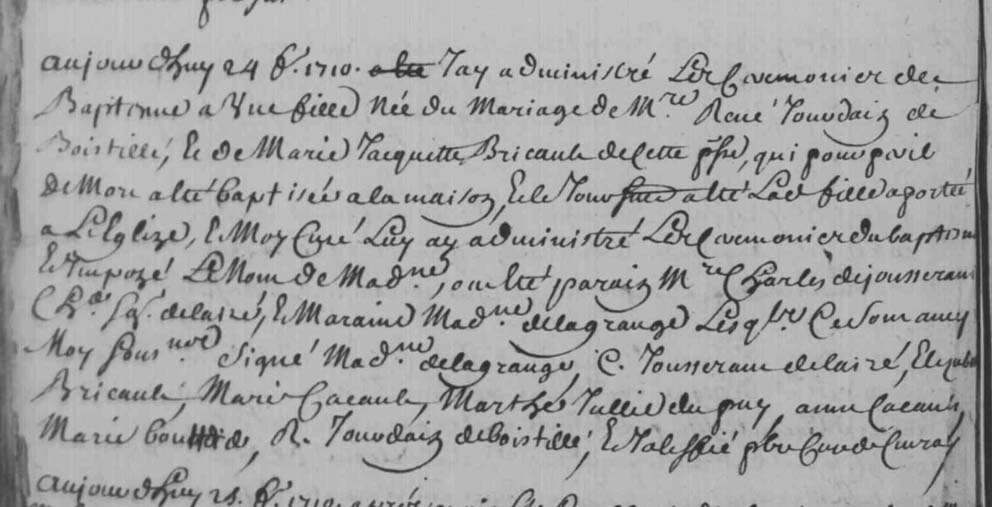 aujourdhuy 24 f.r 1710. a été J'ay administré Les Ceremonies de
Baptesme a Une fille Née du Mariage de M.re René Jourdain de
Boistillé, Et de Marie Jacquette Bricault de Cette psse, qui pour peril
de Mort a été baptisée a la maison, Et le Jour a été La d fille aportée
a L'Eglize, Et Moy Curé Luy ay administré Les Ceremonies du baptesme
Et Impozé Le Nom de Mad.ne, ont été parain M.re Charles de jousserant
Ch.er Sg.r de lairé, Et Maraine Mad.ne de la grange Lesq.ls Ce Sont avec
Moy Sous.nes Signé Mad.ne de la grange, C. Jousserant de lairé,
Bricault, Marie Cacault, Marthe Jullie du puy, anne Cacault,
Marie R. Jourdain de boistillé, Et pbre Curé de
aujourdhuy 25. f.r 1710.